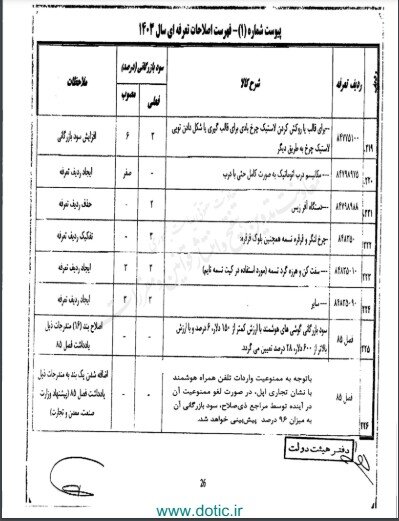 پیوست شماره (۱)- فهرست اصلاحات تعرفه ای سال ۱۴۰۳
ردیف تعرفه
شرح کالا
سود بازرگانی (درصد)
ملاحظات
فعلی
مصوب
۲۱۹.
۸۴۷۷۵۱۰۰
---برای قالب یا روکش کردن لاستیک چرخ بادی برای قالب گیری یا شکل دادن تویی
لاستیک چرخ به طریق دیگر
۲
۶
افزایش سود بازرگانی
۲۲۰.
۸۴۷۹۸۹۷۵
----مکانیسم درب اتوماتیک به صورت کامل حتی با درب
-
صفر
ایجاد ردیف تعرفه
۲۲۱.
۸۴۷۹۸۹۸۸
----دستگاه آفرریس
۲
۰
حذف ردیف تعرفه
۲۲۲
۸۴۸۳۵۰
-چرخ لنگر و قرقره تسمه همچنین بلوک قرقره:
۳
۰
تفکیک ردیف تعرفه
۲۲۳
۸۴۸۳۵۰۱۰
---سفت کن و هرزه گرد تسمه (مورد استفاده در کیت تسمه تایم)
۲
۲
ایجاد ردیف تعرفه
۲۲۴
۸۴۸۳۵۰۹۰
--- سایر
۲
۲
ایجاد ردیف تعرفه
۲۲۵
فصل ۸۵
سود بازرگانی گوشی های هوشمند با ارزش کمتر از ۱۵۰ دلار، ۶ درصد و با ارزش
بالاتر از ۶۰۰ دلار، ۲۸ درصد تعیین می گردد.
-
-
اصلاح بند (۱۶) مندرجات ذیل
یادداشت فصل ۸۵
۲۲۶
فصل ۸۵
باتوجه به ممنوعیت واردات تلفن همراه هوشمند
با نشان تجاری اپل، در صورت لغو ممنوعیت آن
در آینده توسط مراجع ذی‌صلاح، سود بازرگانی آن
به میزان ۹۶ درصد پیش‌بینی خواهد شد.
-
-
اضافه شدن یک بند به مندرجات ذیل
یادداشت فصل ۸۵ (پیشنهاد وزارت
صنعت، معدن و تجارت)
دفتر هیئت دولت
26
www.dotic.ir